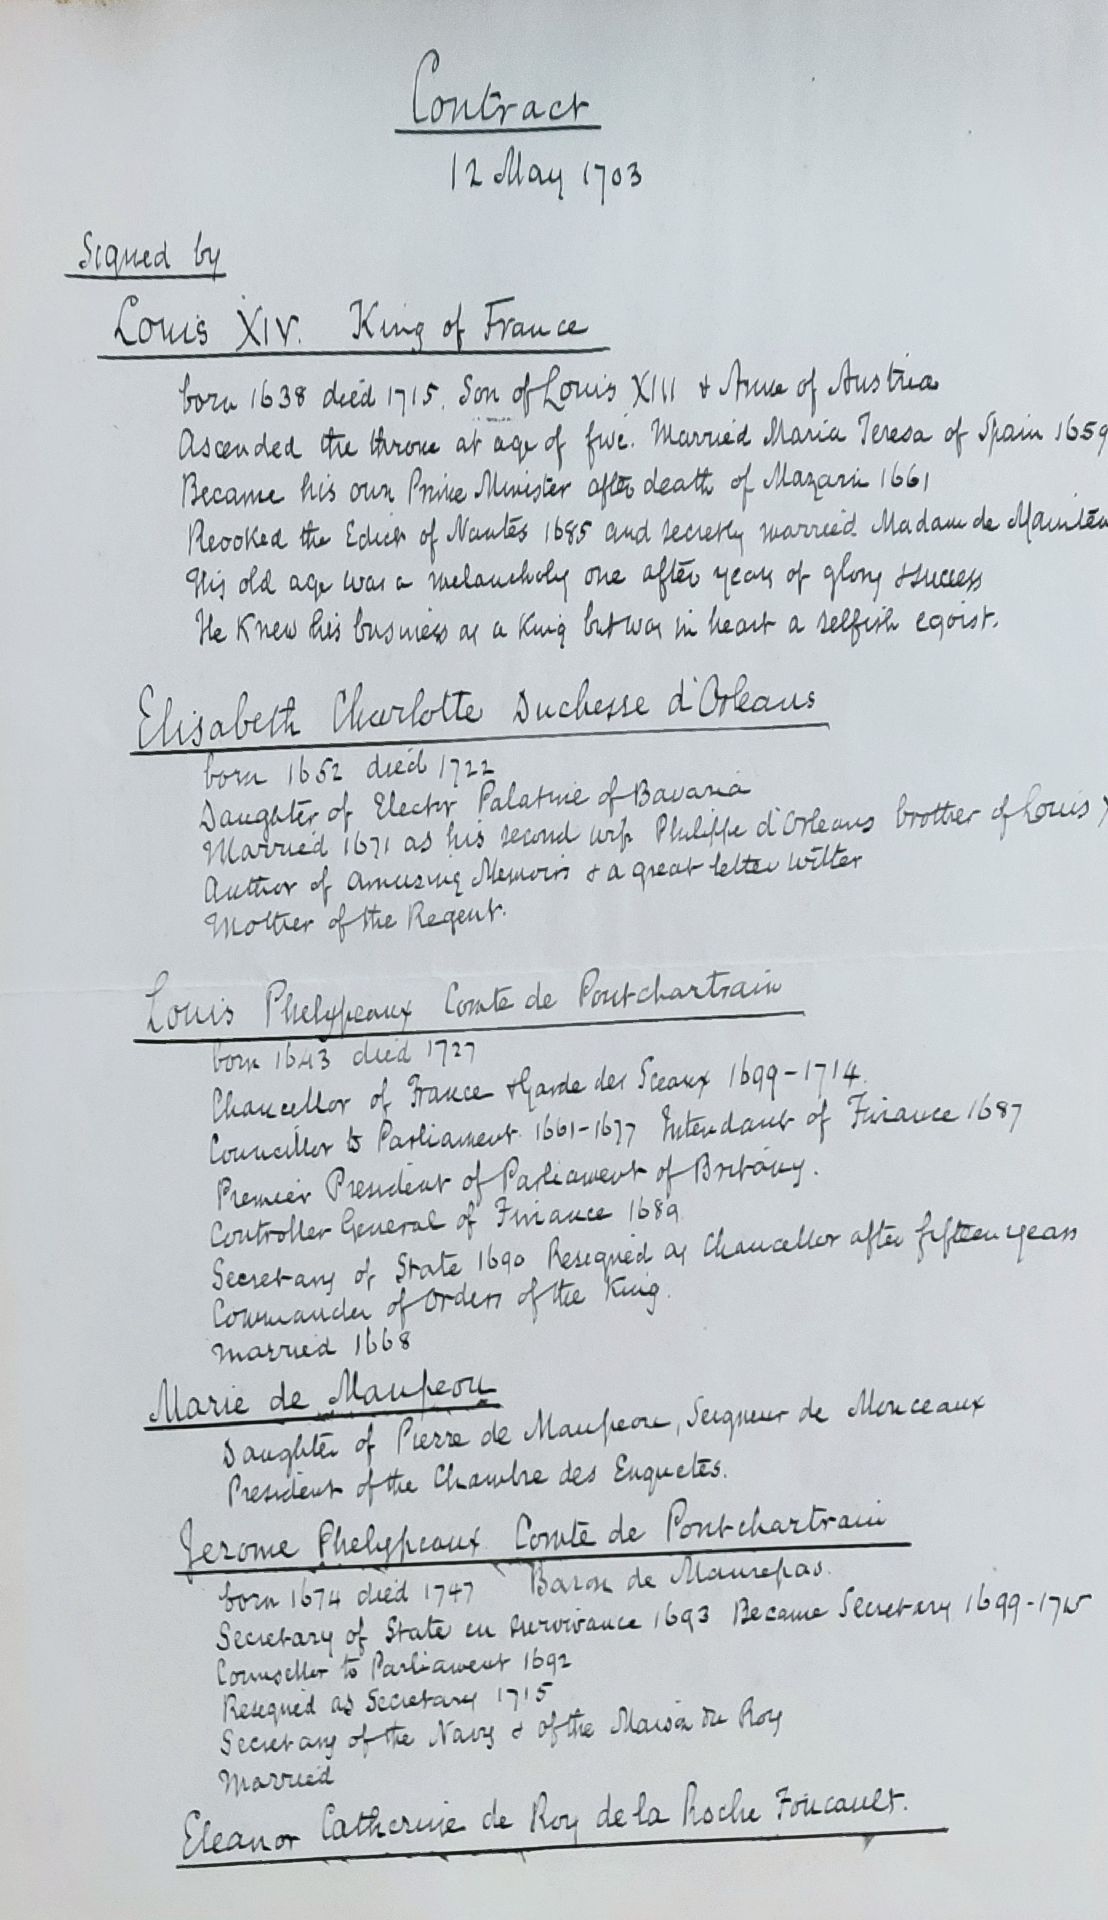 Contract
12 May 1703
Signed by
Louis XIV. King of France
born 1638 died 1715. Son of Louis XIII & Anne of Austria
Ascended the throne at age of five. Married Maria Teresa of Spain 1659
Became his own Prime Minister after death of Mazarin 1661
Revoked the Edict of Nantes 1685 and secretly married Madam de Mainten
His old age was a melancholy one after years of glory & success
He knew his business as a King but was in heart a selfish egoist.
Elisabeth Charlotte Duchesse d'Orleans
born 1652 died 1722
Daughter of Elector Palatine of Bavaria
Married 1671 as his second wife Philippe d'Orleans brother of Louis X
Author of amusing Memoirs & a great letter writer
Mother of the Regent.
Louis Phelypeaux Comte de Pontchartrain
born 1643 died 1727
Chancellor of France & Garde des Sceaux 1699-1714.
Councillor to Parliament 1661-1677 Intendant of Finance 1687
Premier President of Parliament of Britany.
Controller General of Finance 1689
Secretary of State 1690 Resigned as Chancellor after fifteen years
Commander of Orders of the King.
Married 1668
Marie de Maupeou
Daughter of Pierre de Maupeou, Seigneur de Monceaux
President of the Chambre des Enquetes.
Jerome Phelypeaux Comte de Pontchartrain
born 1674 died 1747 Baron de Maurepas.
Secretary of State en survivance 1693 Became Secretary 1699-1715
Counsellor to Parliament 1692
Resigned as Secretary 1715
Secretary of the Navy & of the Maison du Roy
Married
Eleanor Catherine de Roy de la Roche Foucault.